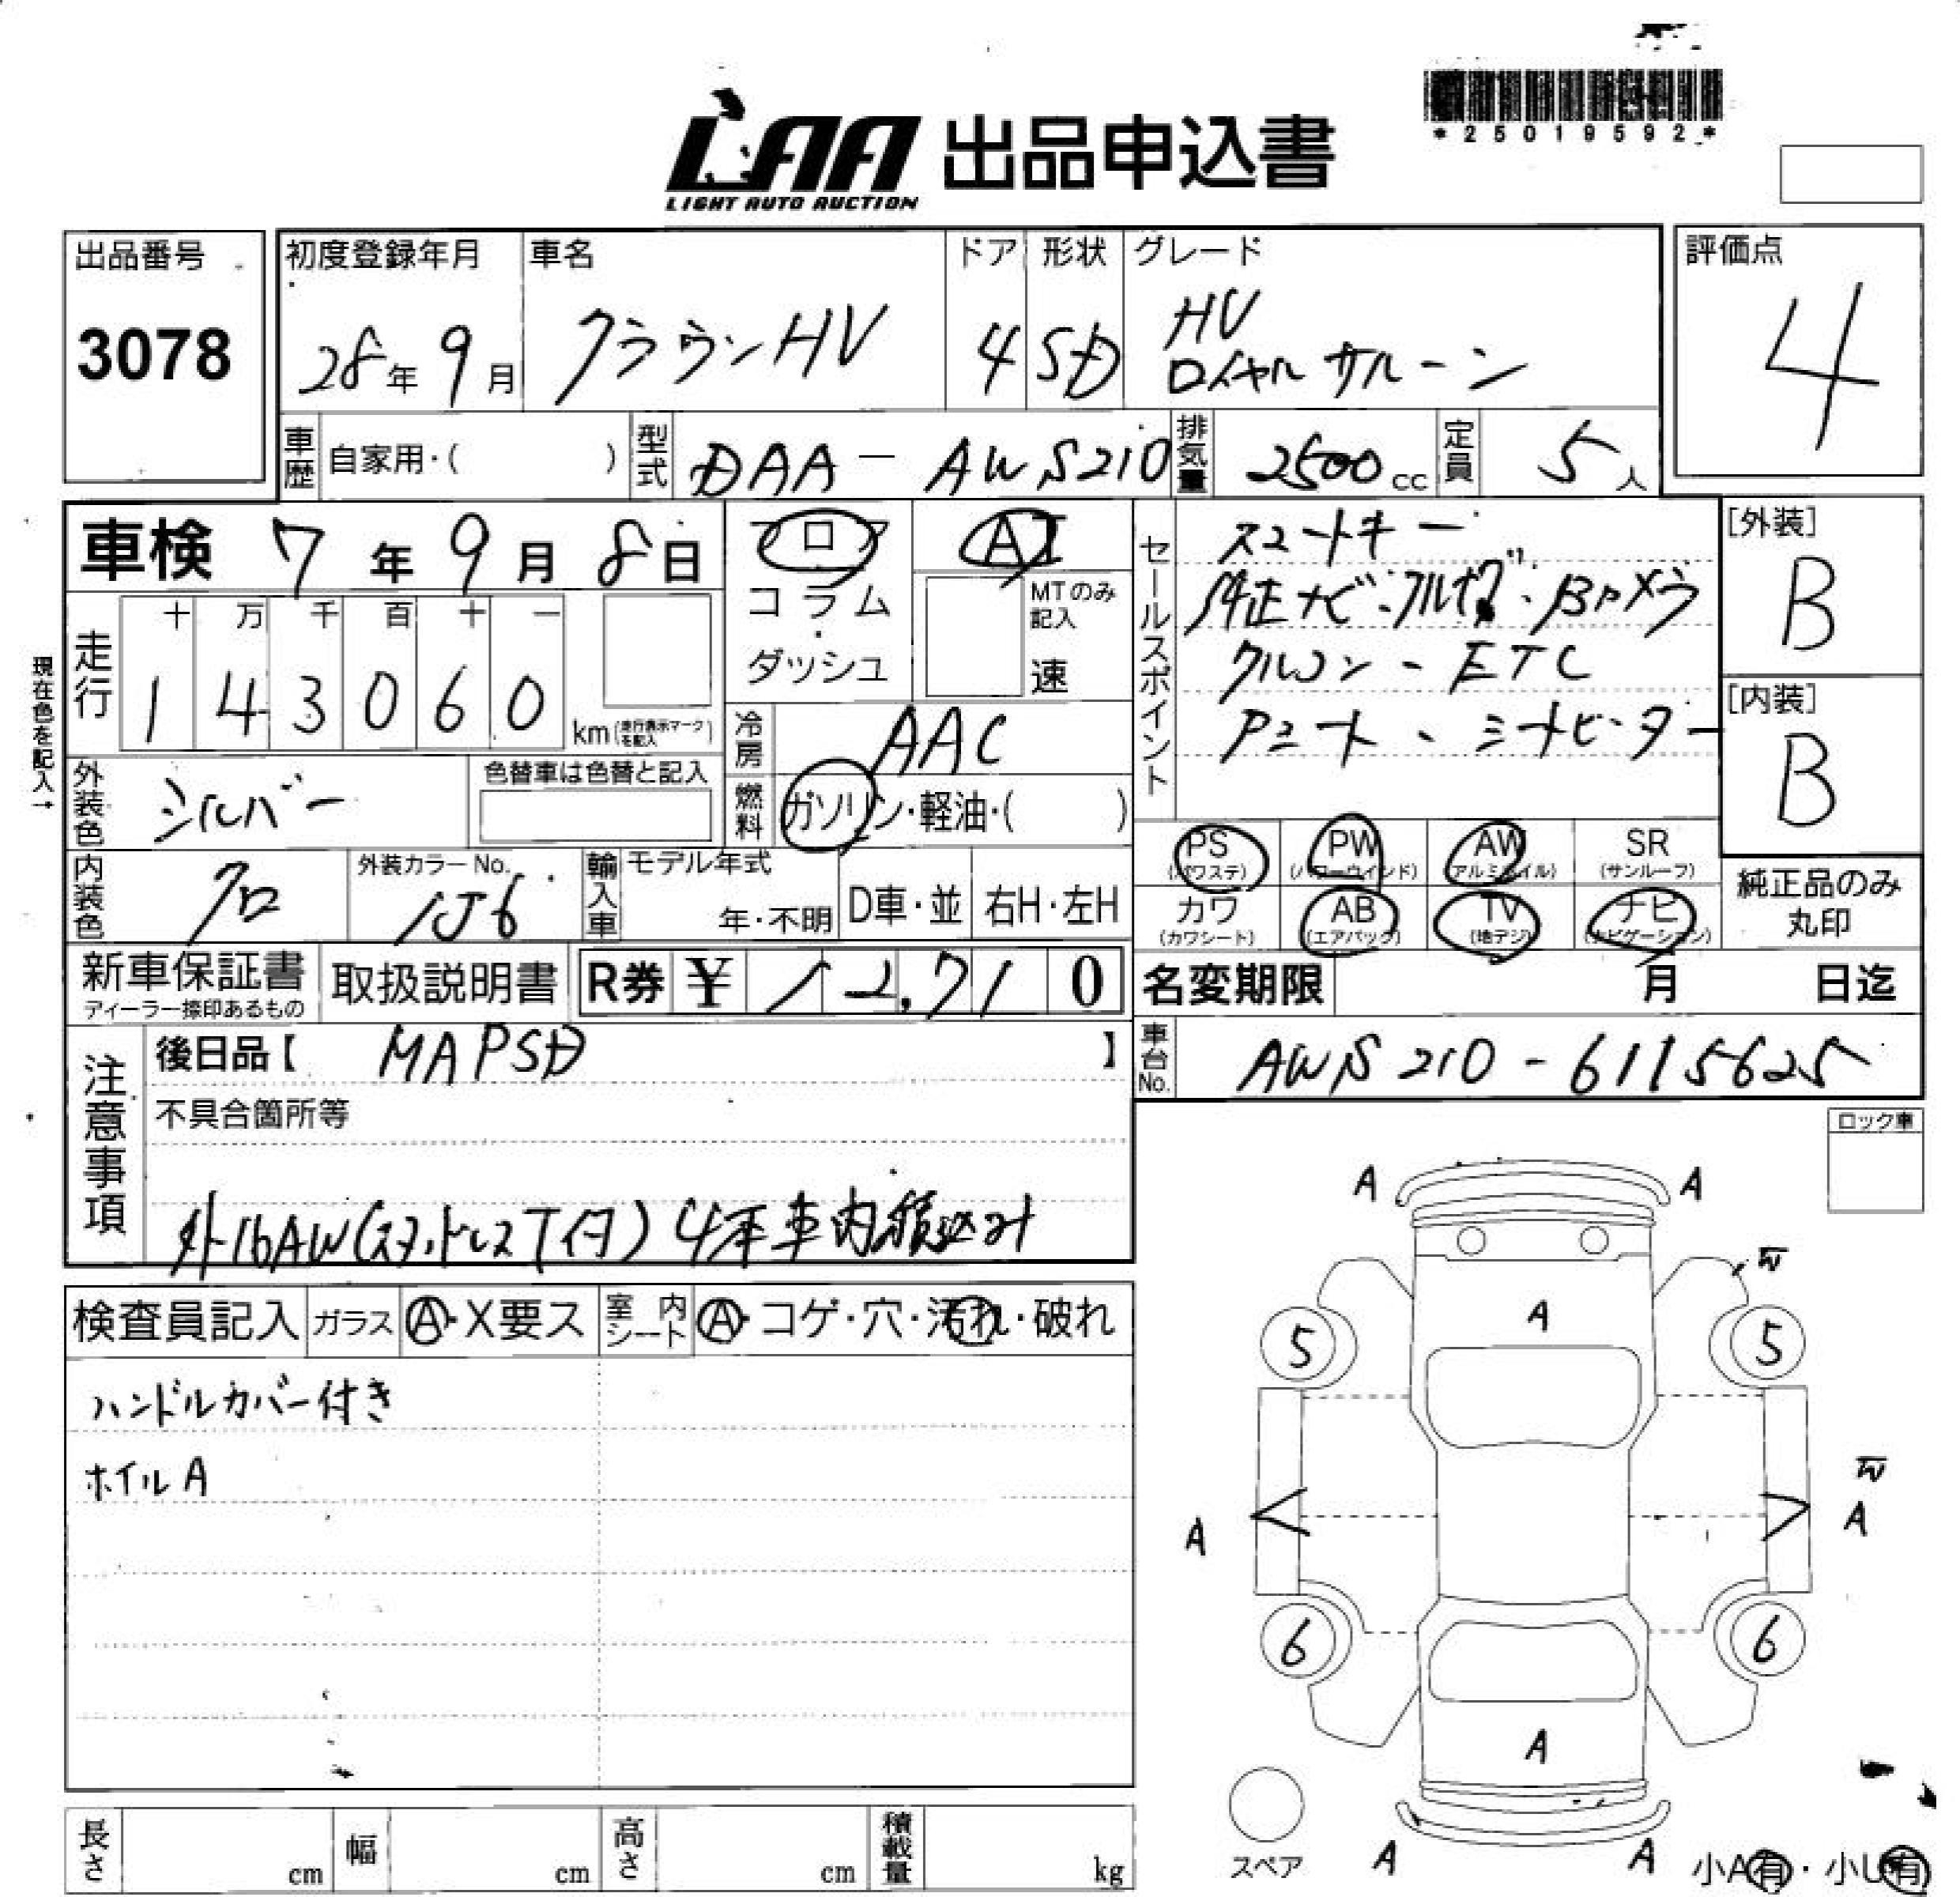 *25019592*
LAA 出品申込書
LIGHT AUTO AUCTION
出品番号
3078
初度登録年月
28年 9月
車名
クラウンHV
ドア
4
形状
SD
グレード
HV
ロイヤルサルーン
評価点
4
車歴 自家用・( )
型式 DAA - AWS210
排気量 2500 cc
定員 5 人
車検 7年 9月 8日
フロア
コラム
・
ダッシュ
AT
MTのみ
記入
速
セールスポイント
スマートキー
純正ナビ・フルセグ・Bカメラ
クルコン・ETC
[外装]
B
[内装]
B
現在色を記入→
走行
十 万 千 百 十 一
1 4 3 0 6 0
km (走行表示マークを記入)
冷房 AAC
燃料 ガソリン・軽油・( )
外装色 シルバー
色替車は色替と記入
内装色 クロ
外装カラーNo.
1J6
輸入車 モデル年式
年・不明
D車・並
右H・左H
PS
(パワステ)
PW
(パワーウィンド)
AW
(アルミホイル)
SR
(サンルーフ)
カワ
(カワシート)
AB
(エアバック)
TV
(地デジ)
ナビ
(ナビゲーション)
純正品のみ
丸印
新車保証書
ディーラー捺印あるもの
取扱説明書
R券 ¥ 12,710
名変期限 月 日迄
注意事項
後日品【 MAPSD 】
不具合箇所等
外16AW(スタッドレスTイヤ)4本車内積込み
車台No. AWS210-6115625
ロック車
検査員記入
ガラス Ⓐ・X要ス
室内シート Ⓐ・コゲ・穴・汚れ・破れ
ハンドルカバー付き
ホイルA
A A
W
A
5 5
W
A A
6 6
A
スペア
A A
小A有・小U有
長さ cm
幅 cm
高さ cm
積載量 kg